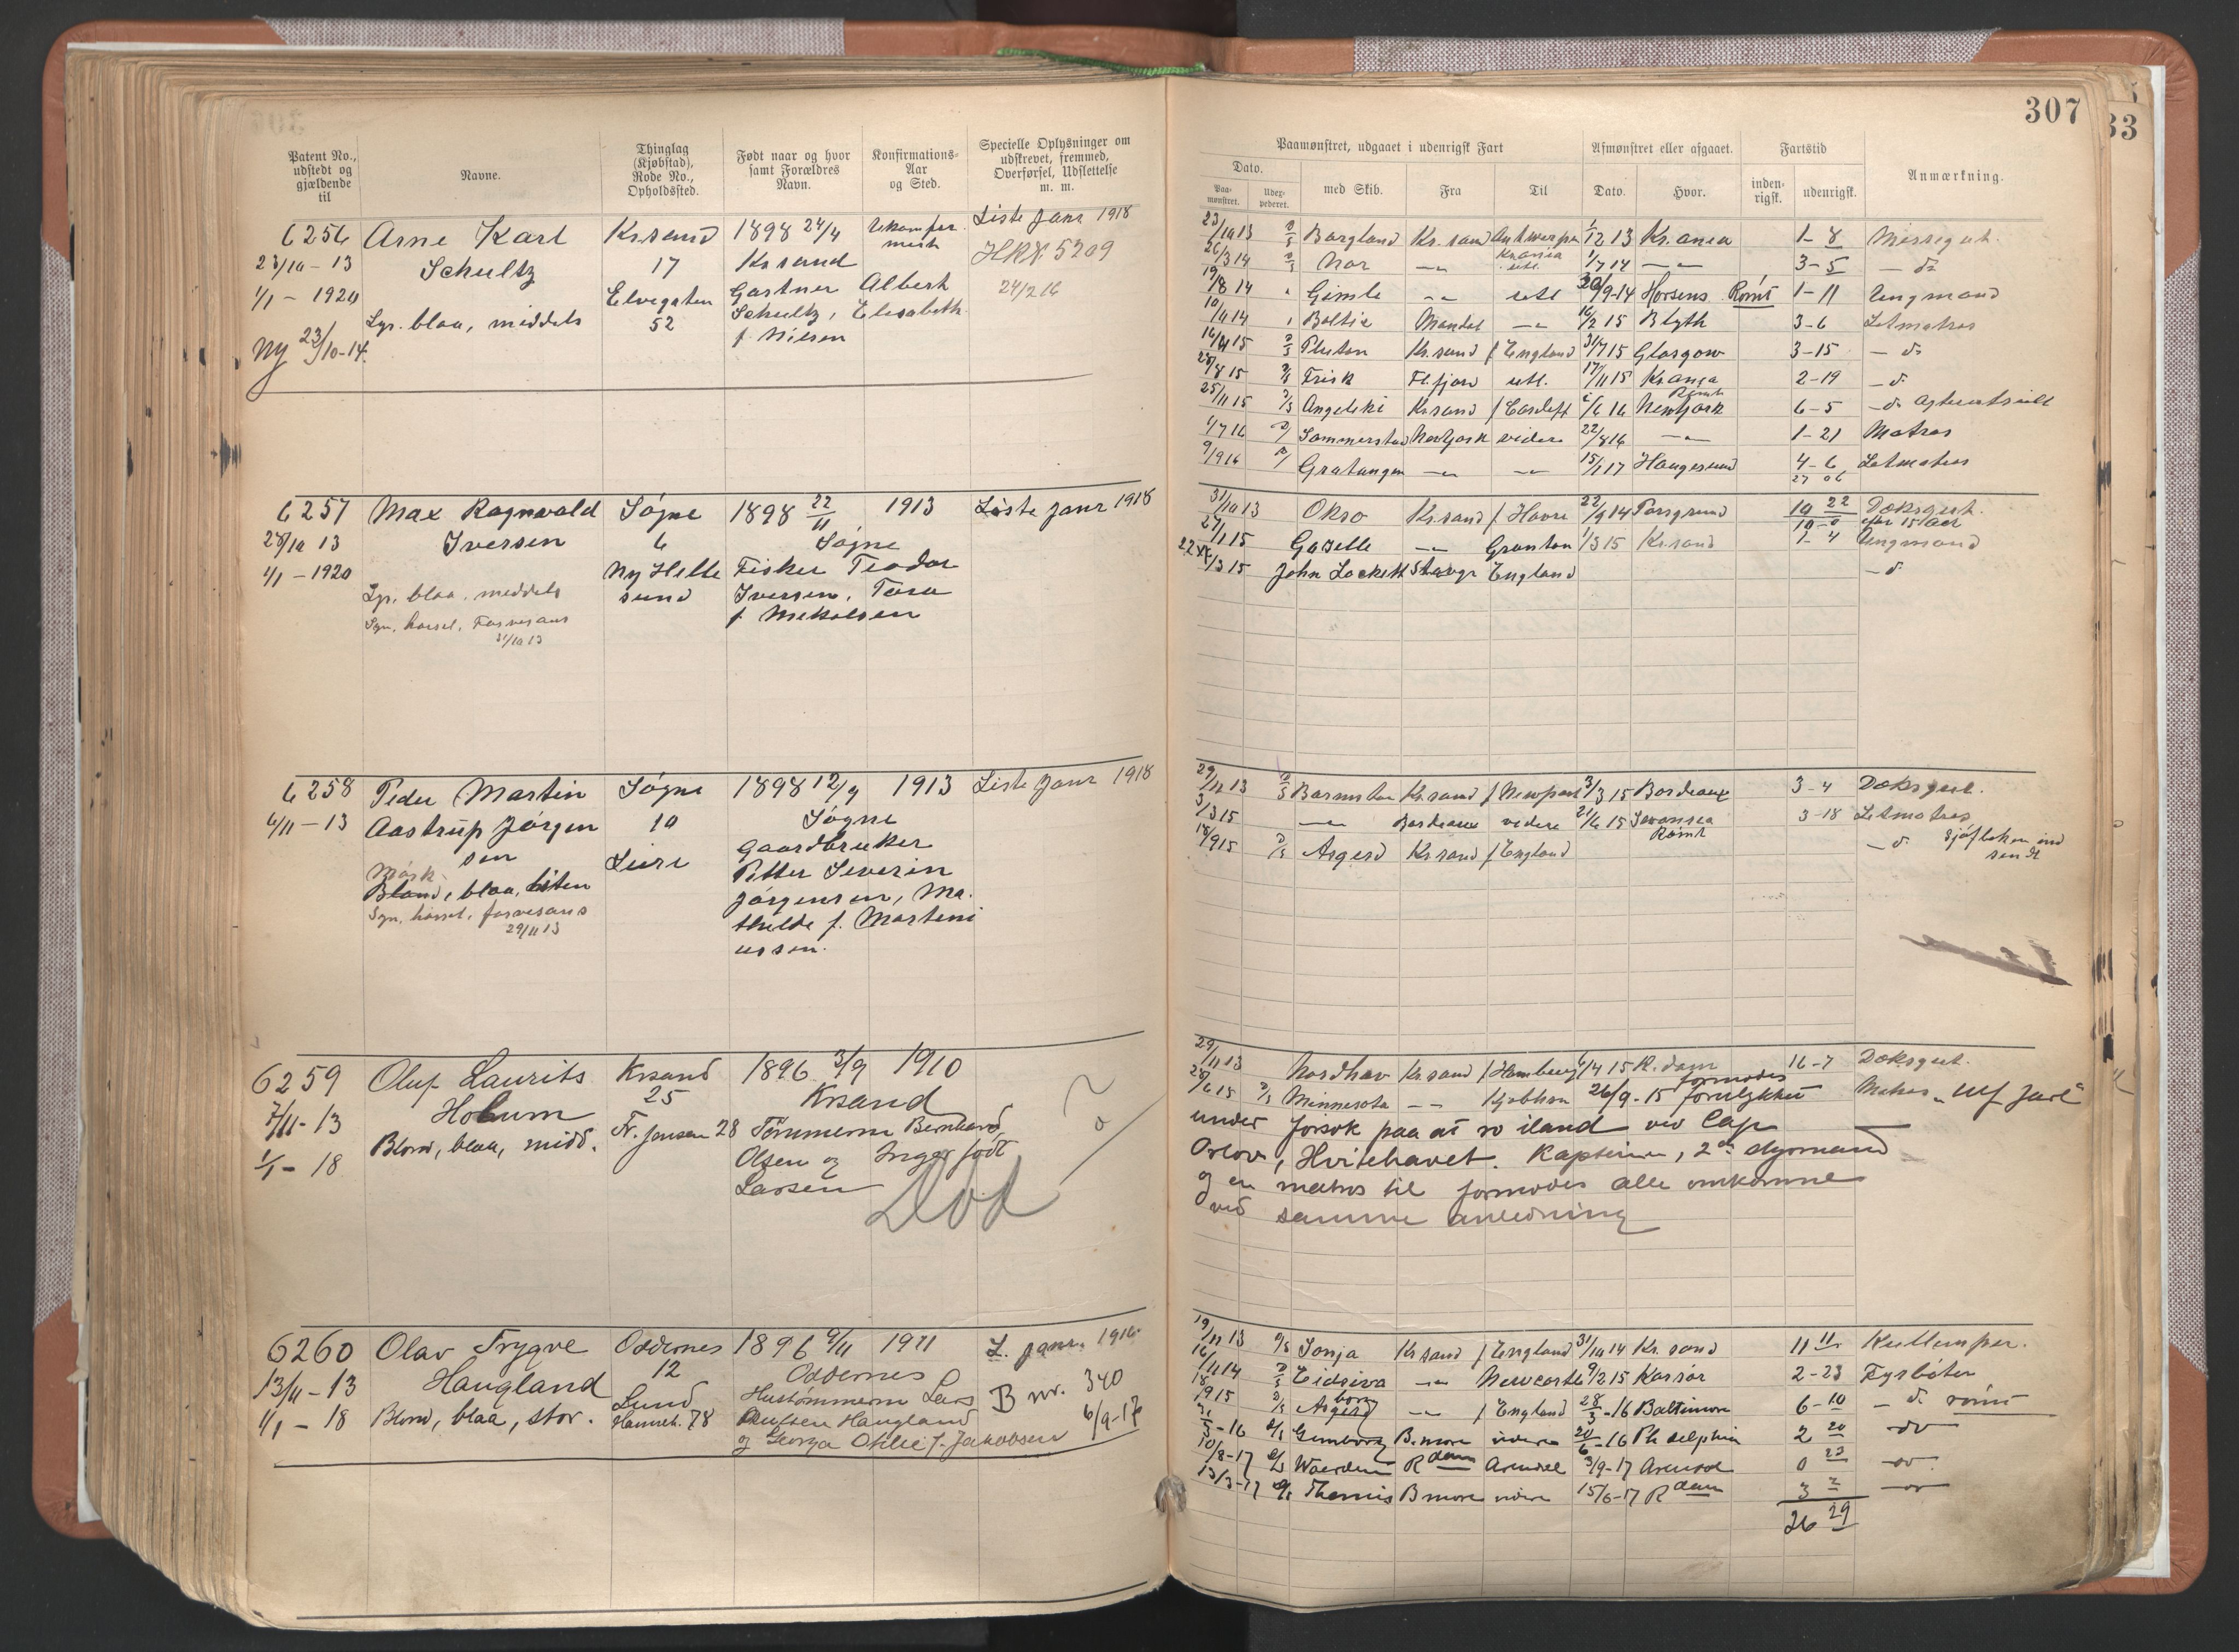 307
33
Patent No., udstedt og gjældende til
Navne.
Thinglag (Kjøbstad), Rode No., Opholdssted.
Født naar og hvor samt Forældres Navn.
Konfirmations-Aar og Sted.
Specielle Oplysninger om udskrevet, fremmed, Overførsel, Udslettelse m. m.
Paamønstret, udgaaet i udenrigsk Fart
Afmønstret eller afgaaet.
Fartstid
Anmærkning.
Dato.
Paamønstret.
Udexpederet.
med Skib.
Fra
Til
Dato.
Hvor.
indenrigsk.
udenrigsk.
6256 Arne Karl Kr.sand 1898 24/4 Liste Janr 1918
23/10 - 13 Schultz 17 Kr.sand HRN 5209
1/1 - 1920 Elvegaten Gartner Albert 24/2 16
Lys. blaa, middels 52 Schultz, Elisabeth
Ny 23/10-14. f. Nilsen
23/10 13 D/S Borgland Kr.sand Antwerpen 1/12 13 Kr.ania 1-8 Messegut.
26/3 14 D/S Nor -"- Kr.ania utl. 1/7 14 -"- 3-5 - do
19/8 14 " Gimle -"- utl 30/9-14 Horsens Rømt 1-11 Ungmand
10/11 14 " Baltic Mandal -"- 16/2 15 Blyth 3-6 Letmatros
16/4 15 D/S Pluton Kr.sand / England 31/7 15 Glasgow 3-15 - do
28/8 15 D/S Frisk Fl.fjord utl. 17/11 15 Kr.ania 2-19 - d.
25/11 15 D/S Angelski Kr.sand / Cardiff /6 16 NewYork Rømt 6-5 - do
4/7 16 D/ Sommerstad NewYork videre 22/8 16 -"- 1-21 Matros
9/9 16 D/ Gratangen -"- -"- 15/1 17 Haugesund 4-6 Letmatros
27 06
6257 Max Ragnvald Søgne 1898 22/11 1913 Liste Janr 1918
28/10 13 Iversen 6 Søgne
1/1 - 1920 Ny Helle Fisker Teodor
Lys. blaa. middels sund Iversen, Tora
Syn, hørsel, Farvesans f. Mikalsen
31/10 13
31/10 13 Okso Kr.sand / Havre 22/9 14 Porsgrund 10 22 Doksgut.
10-0 efter 15 aar
27/1 15 Gazelle -"- Granton 1/3 15 Kr.sand 1-4 Ungmand
22/3 15 John Lockett Stavgr England - d.
6258 Peder Martin Søgne 1898 12/9 1913 Liste Janr 1918
6/11 - 13 Aastrup Jørgen 10 Søgne
sen Leire Gaardbruker
Mørk Petter Severin
Blond, blaa, liten Jørgensen, Ma
Syn, hørsel, farvesans thilde f. Martini
29/11 13 ussen.
29/11 13 D/S Barmston Kr.sand / Newport 3/3 15 Bordeaux 3-4 Doksgut.
3/3 15 -"- Bordeaux videre 21/6 15 Swansea Rømt 3-18 Letmatros
18/9 15 D/S Asgerd Kr.sand / England - d.
6259 Oluf Laurits Krsand 1896 3/9 1910
7/11-13 Holum 25 Krsand
1/1 - 18 Blond, blaa, midd. Fr. Jansen 28 Tømmerm Bernhard
Olsen og Inger født
Larsen
Død
29/11 13 Nordhav Kr.sand / Hamburg /4 15 R.dam 16-7 Doksgut.
28/6 15 D/S Minnesota -"- Kjøbhvn 26/9-15 formodes forulykket Matros "Ulf Jarl"
under forsøk paa at ro iland ved Cap
Orlov, Hvitehavet. Kaptein, 2den styrmand
og en matros til formodes alle omkomne
ved samme anledning
6260 Olav Trygve Oddernes 1896 9/11 1911 L. janr. 1916.
13/11-13 Haugland 12 Oddernes B nr. 340
1/1 - 18 Blond, blaa, stor. Lund Hustømmerm Lars 6/9-17
Hanneh. 78 Knutsen Haugland
og Georga Otilie f. Jakobsen
19/11 13 D/S Sonja Kr.sand / England 31/10 14 Kr.sand 11 11 Kullemper.
16/11 14 D/S Eidsiva -"- Newcastle 9/2 15 Korsør 2-23 Fyrbøter
18/9 15 D/S Asgerd borg -"- / England 28/3-16 Baltimore 6-10 - d. rømt
/5-16 D/S Gunborg B.more videre 20/6-16 Philadelphia 2 20 -do-
10/8-17 D/S Woerden Rdam Arendal 3/9-17 Arendal 0 23 -do-
13/3-17 D/S Themis Bmore videre 15/6-17 Rdam 3 2 -do-
26 29